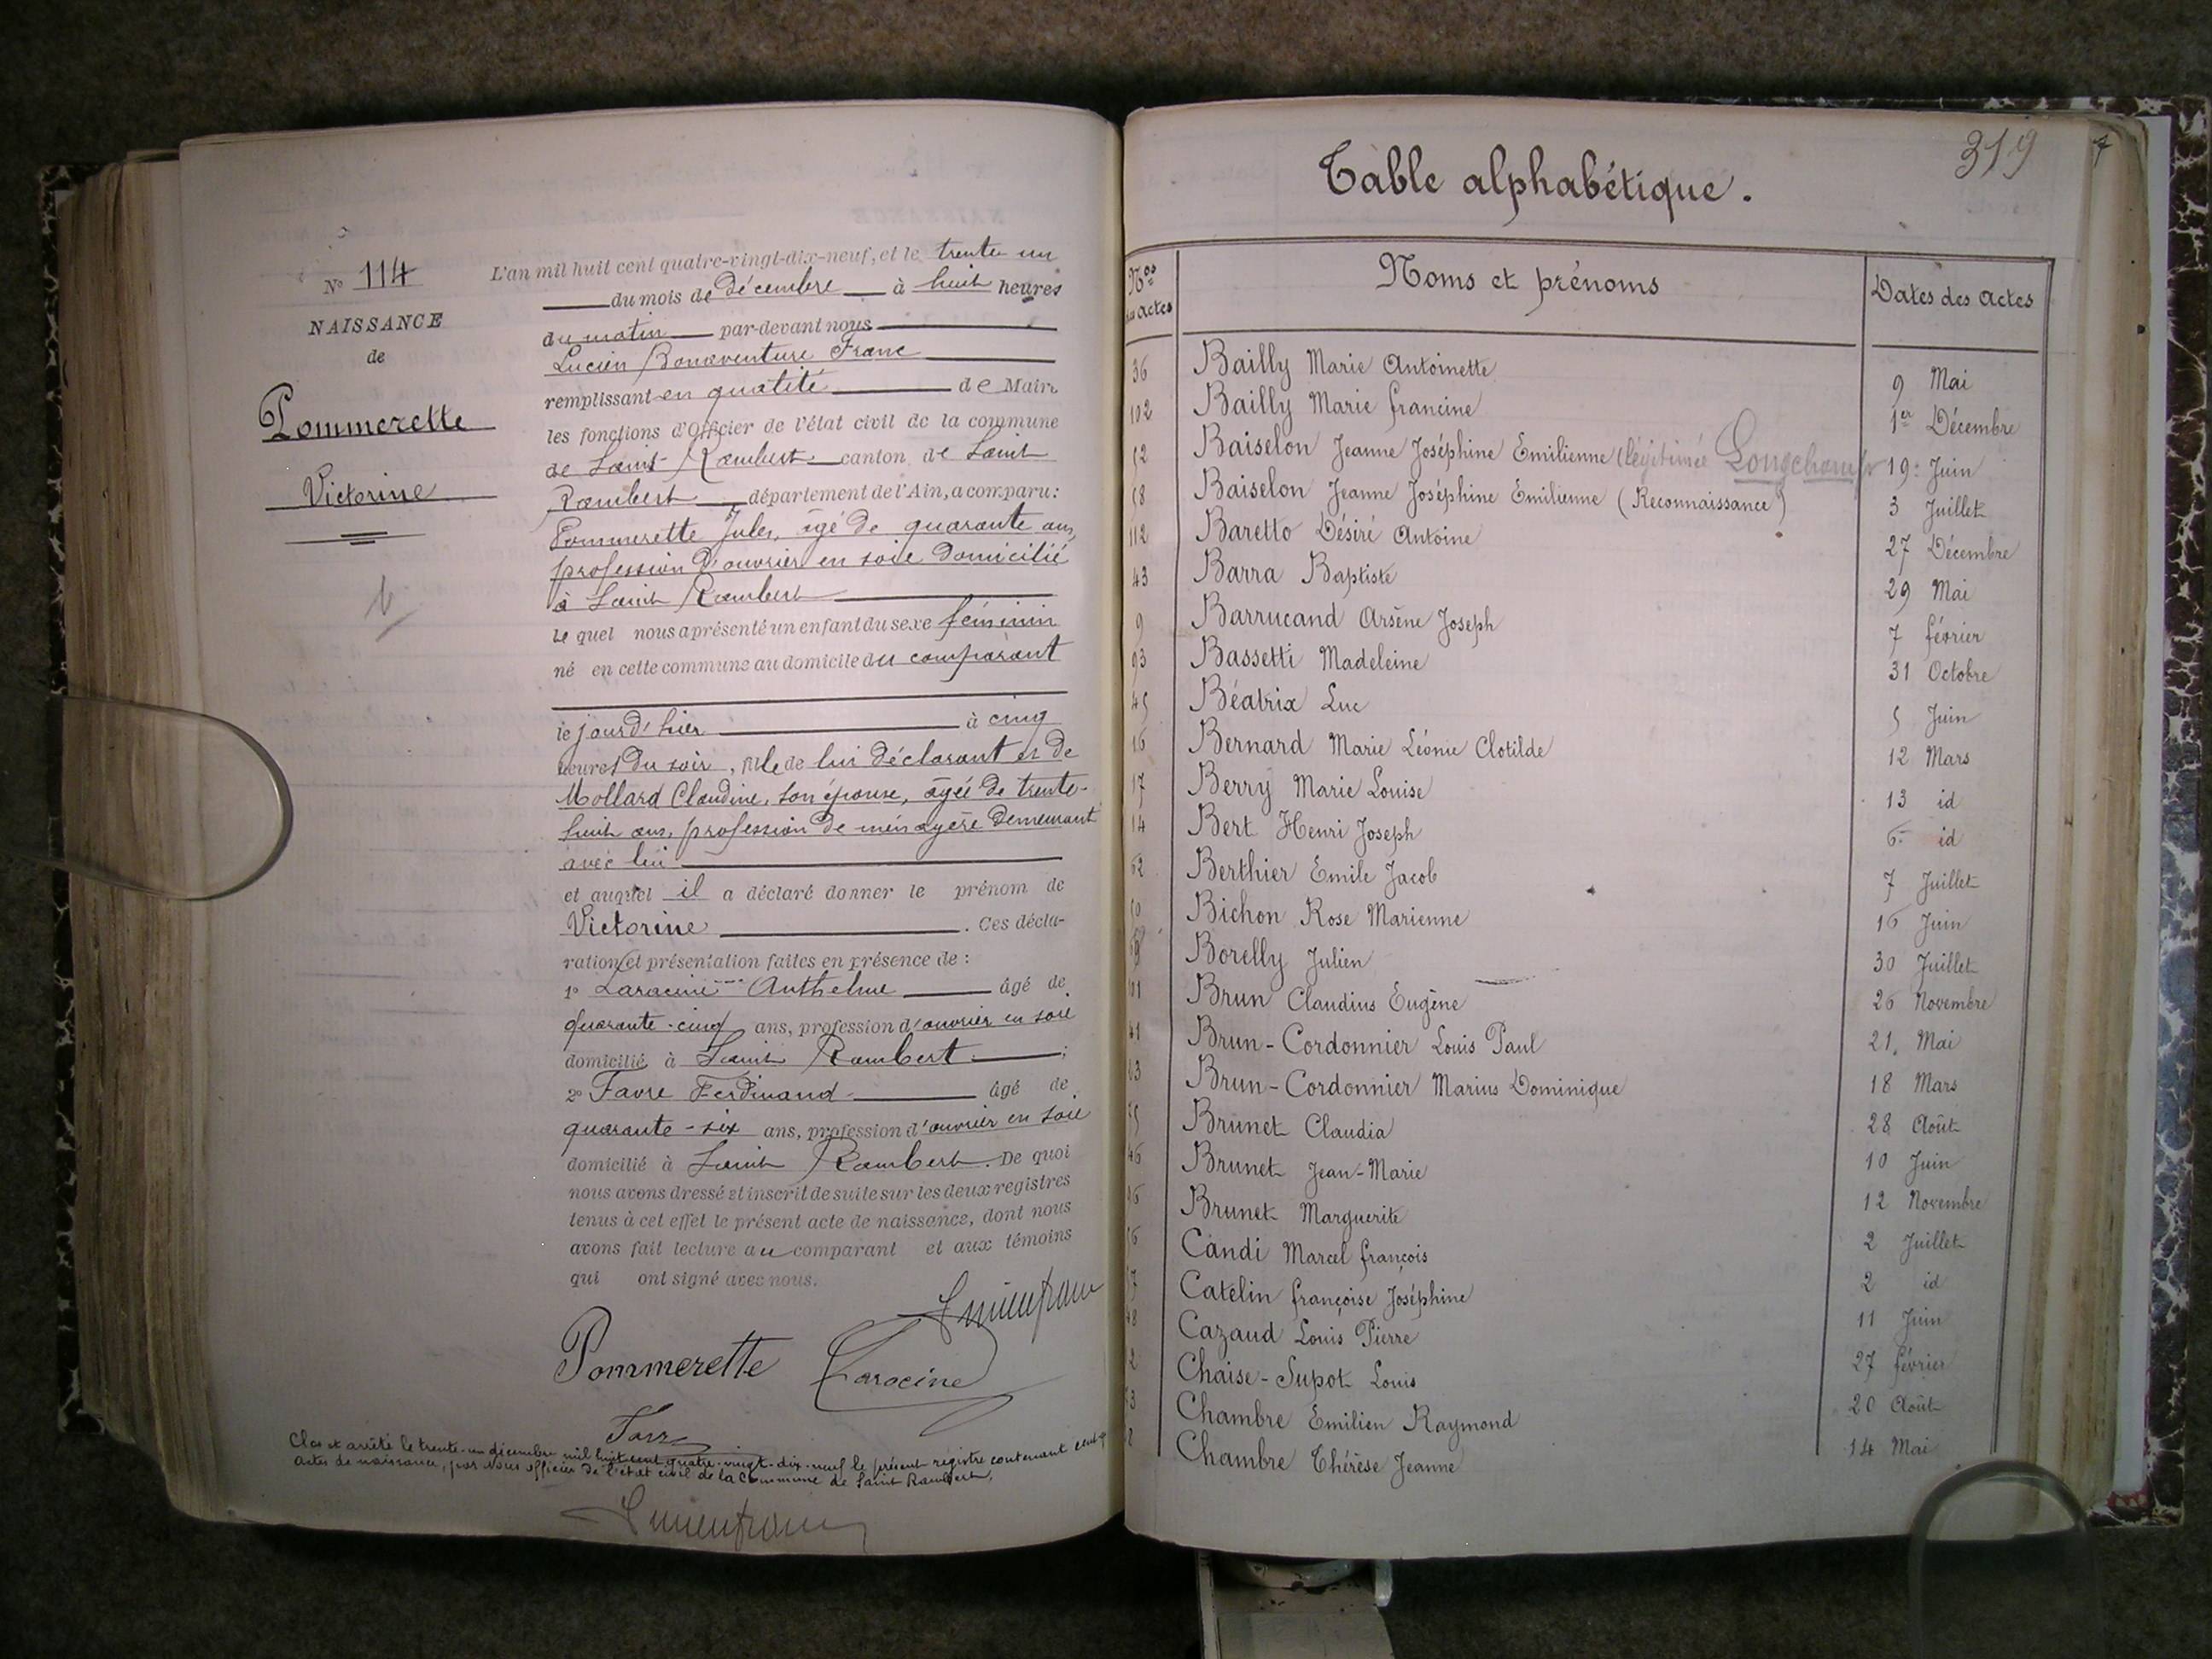 N° 114
NAISSANCE
de
Pommerette
Victorine
L'an mil huit cent quatre-vingt-dix-neuf, et le trente un
du mois de décembre à huit heures
du matin par-devant nous
Lucien Bonaventure Franc
remplissant en qualité de Maire
les fonctions d'Officier de l'état civil de la commune
de Saint Rambert canton de Saint
Rambert département de l'Ain, a comparu:
Pommerette Jules, âgé de quarante ans,
profession d'ouvrier en soie domicilié
à Saint Rambert
Le quel nous a présenté un enfant du sexe féminin
né en cette commune au domicile du comparant
le jour d'hier à cinq
heures du soir, fille de lui déclarant et de
Mollard Claudine, son épouse, âgée de trente-
huit ans, profession de ménagère demeurant
avec lui
et auquel il a déclaré donner le prénom de
Victorine. Ces décla-
ration et présentation faites en présence de :
1° Laracine Anthelme âgé de
quarante-cinq ans, profession d'ouvrier en soie
domicilié à Saint Rambert ;
2° Favre Ferdinand âgé de
quarante-six ans, profession d'ouvrier en soie
domicilié à Saint Rambert. De quoi
nous avons dressé et inscrit de suite sur les deux registres
tenus à cet effet le présent acte de naissance, dont nous
avons fait lecture au comparant et aux témoins
qui ont signé avec nous.
Pommerette Laracine
Clos et arrêté le trente-un décembre mil huit cent quatre-vingt-dix-neuf le présent registre contenant
actes de naissance, par Nous officier de l'état civil de la Commune de Saint Rambert.
319
Table alphabétique.
Nos des actes Noms et prénoms Dates des actes
36 Bailly Marie Antoinette 9 Mai
102 Bailly Marie francine 1er Décembre
52 Baiselon Jeanne Joséphine Emilienne (légitimée Longchamp 19 Juin
58 Baiselon Jeanne Joséphine Emilienne (Reconnaissance) 3 Juillet
112 Baretto Désiré Antoine 27 Décembre
43 Barra Baptiste 29 Mai
9 Barrucand Arsène Joseph 7 février
93 Bassetti Madeleine 31 Octobre
45 Béatrix Luc 5 Juin
16 Bernard Marie Léonie Clotilde 12 Mars
17 Berry Marie Louise 13 id
14 Bert Henri Joseph 6 id
62 Berthier Emile Jacob 7 Juillet
50 Bichon Rose Marienne 16 Juin
Borelly Julien 30 Juillet
101 Brun Claudius Eugène 26 Novembre
41 Brun-Cordonnier Louis Paul 21 Mai
Brun-Cordonnier Marius Dominique 18 Mars
Brunet Claudia 28 Août
46 Brunet Jean-Marie 10 Juin
Brunet Marguerite 12 Novembre
Candi Marcel françois 2 Juillet
Catelin françoise Joséphine 2 id
48 Cazaud Louis Pierre 11 Juin
Chaise-Supot Louis 27 février
Chambre Emilien Raymond 20 Août
Chambre Thérèse Jeanne 14 Mai